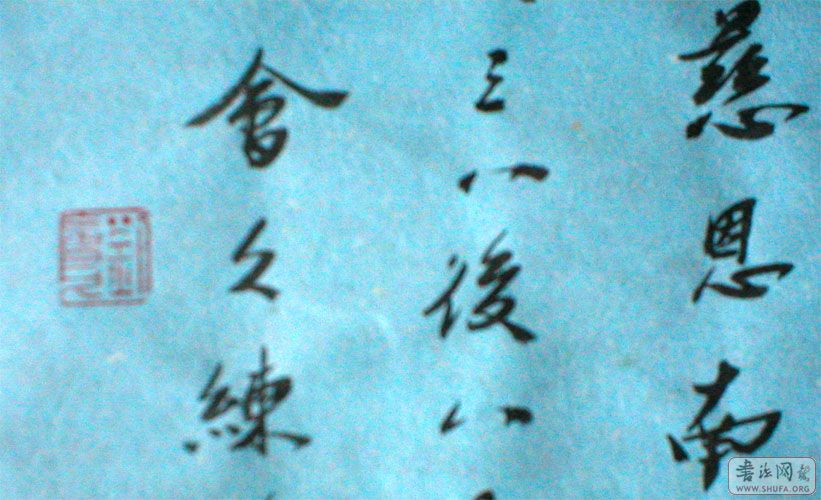 慈恩南
三八後八
會久練
書法网
WWW.SHUFA.ORG